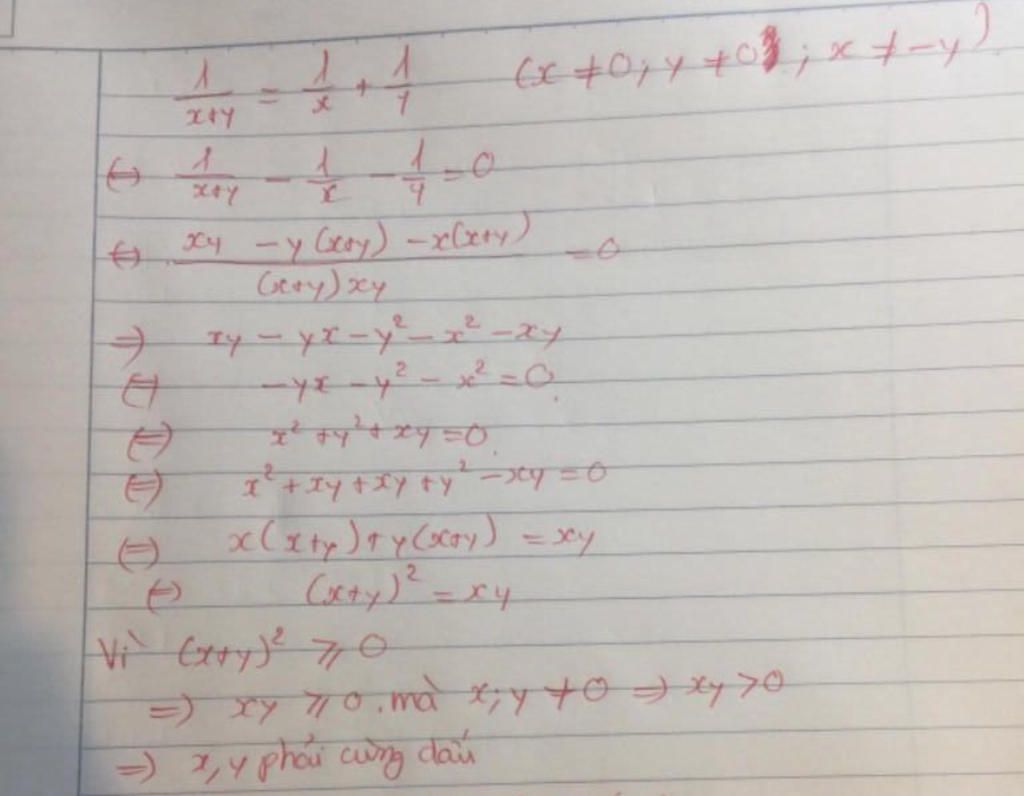 1/(x+y) = 1/x + 1/y (x ≠ 0; y ≠ 0; x ≠ -y)
⇔ 1/(x+y) - 1/x - 1/y = 0
⇔ (xy - y(x+y) - x(x+y))/((x+y)xy) = 0
⇒ xy - yx - y² - x² - xy
⇔ -yx - y² - x² = 0
⇔ x² + y² + xy = 0
⇔ x² + xy + xy + y² - xy = 0
⇔ x(x+y) + y(x+y) = xy
⇔ (x+y)² = xy
Vì (x+y)² ⩾ 0
⇒ xy ⩾ 0. mà x; y ≠ 0 ⇒ xy > 0
⇒ x, y phải cùng dấu